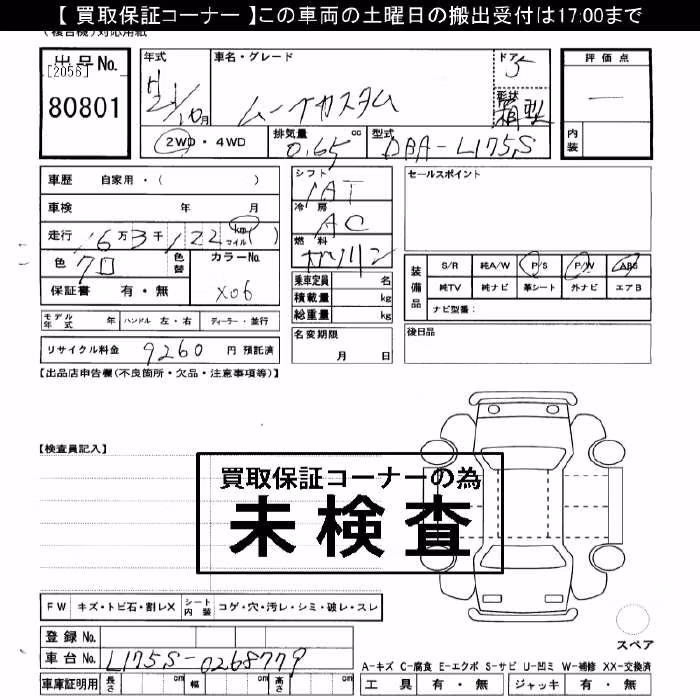 【 買取保証コーナー 】この車両の土曜日の搬出受付は17:00まで
(複合機)対応用紙
出品No.
[2056]
80801
年式
H21/10月
車名・グレード
ムーヴカスタム
ドア
5
形状
箱型
評価点
—
内装
2WD・4WD
排気量 0.65 cc
型式 DBA-L175S
車歴 自家用・( )
車検 年 月
走行 16万3千122 km マイル ( )
色 クロ 色替
カラーNo.
X06
保証書 有・無
シフト
IAT
冷房
AC
燃料
ガソリン
乗車定員 名
積載量 kg
総重量 kg
セールスポイント
装備品
S/R 純A/W P/S P/W ABS
純TV 純ナビ 革シート 外ナビ エアB
ナビ型番:
モデル年式 年 ハンドル 左・右 ディーラー・並行
名変期限
月 日
後日品
リサイクル料金 9260 円 預託済
【出品店申告欄(不良箇所・欠品・注意事項等)】
【検査員記入】
買取保証コーナーの為
未検査
FW キズ・トビ石・割レX シート内装 コゲ・穴・汚レ・シミ・破レ・スレ
登録No.
車台No. L175S-0268779
車庫証明用 長さ cm 幅 cm 高さ cm
スペア
A-キズ C-腐食 E-エクボ S-サビ U-凹ミ W-補修 XX-交換済
工具 有・無 ジャッキ 有・無